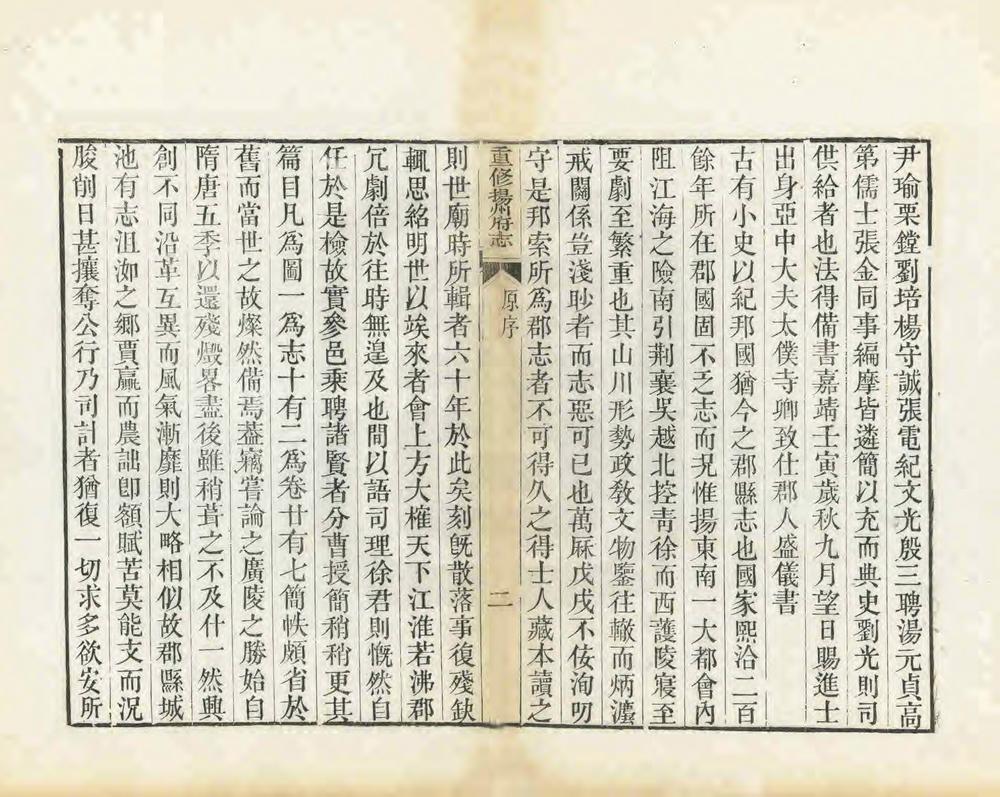 尹瑜栗鏜劉培楊守誠張電紀文光殷三聘湯元貞高
第儒士張金同事編摩皆遴簡以充而典史劉光則司
供給者也法得備書嘉靖壬寅歲秋九月望日賜進士
出身亞中大夫太僕寺卿致仕郡人盛儀書
古有小史以紀邦國猶今之郡縣志也國家熙洽二百
餘年所在郡國固不乏志而況惟揚東南一大都會內
阻江海之險南引荆襄吳越北控青徐而西護陵寢至
要劇至繁重也其山川形勢政敎文物鑒往轍而炳灋
戒關係豈淺眇者而志惡可已也萬厤戊戌不佞洵叨
守是邦索所爲郡志者不可得久之得士人藏本讀之
重修揚州府志
原序
二
則世廟時所輯者六十年於此矣刻旣散落事復殘缺
輒思紹明世以竢來者會上方大榷天下江淮若沸郡
冗劇倍於往時無遑及也間以語司理徐君則慨然自
任於是檢故實參邑乘聘諸賢者分曹授簡稍稍更其
篇目凡爲圖一爲志十有二爲卷廿有七簡帙頗省於
舊而當世之故燦然備焉葢竊嘗論之廣陵之勝始自
隋唐五季以還殘燬畧盡後雖稍葺之不及什一然興
創不同沿革互異而風氣漸靡則大略相似故郡縣城
池有志沮洳之鄉賈贏而農詘卽額賦苦莫能支而況
朘削日甚攘奪公行乃司計者猶復一切求多欲安所